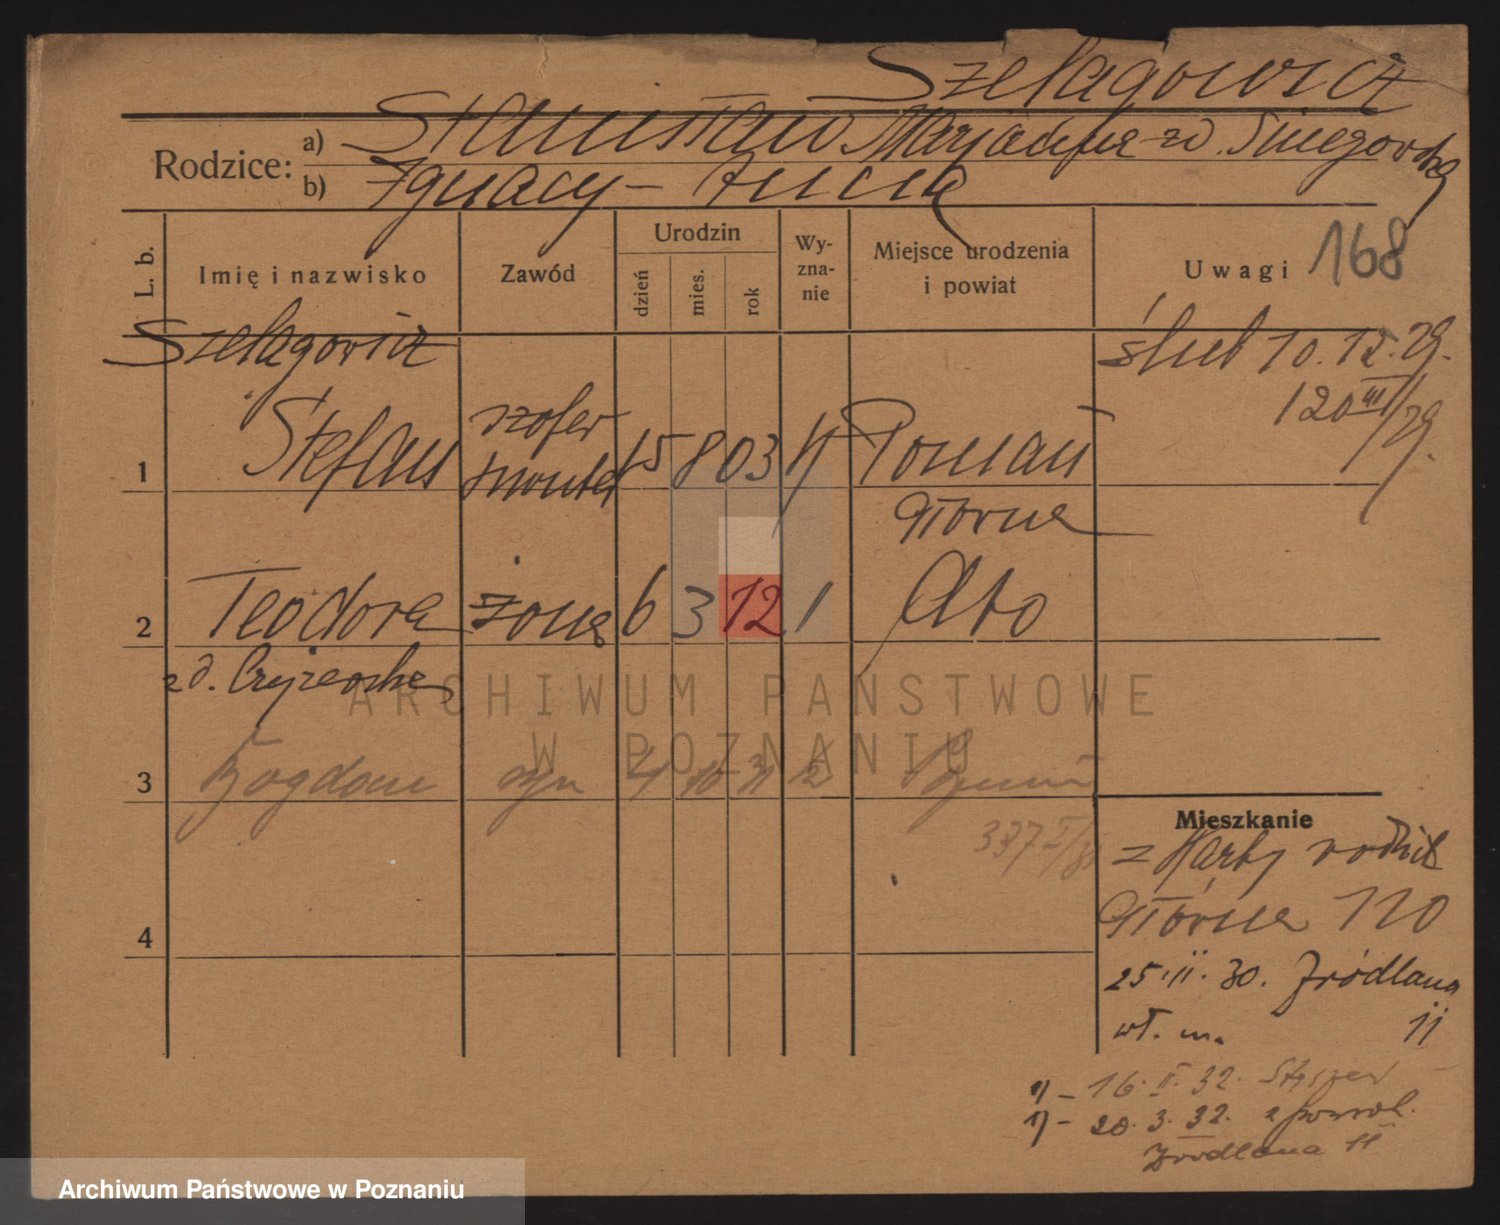 Szelągowicz
Rodzice: a) Stanisław Marjanna zd. Śniegowska
b) Ignacy - Anna
L. b.
Imię i nazwisko
Zawód
Urodzin
dzień
mies.
rok
Wy-
zna-
nie
Miejsce urodzenia
i powiat
Uwagi 168
Szelągowicz
ślub 10.12.29.
120 III/29.
szofer
1 Stefan monter 15 8 03 Poznań
Główna
2 Teodora żona 6 3 12 1 dto
zd.
ARCHIWUM PAŃSTWOWE
W POZNANIU
3 Bogdan syn 4 10 31 Poznań
Mieszkanie
z Karty rodzic
Główna 120
4
25.II.30. Źródlana
wł. m. 11
1) - 16.II.32.
1) - 20.3.32. z powrot.
Źródlana 11
Archiwum Państwowe w Poznaniu